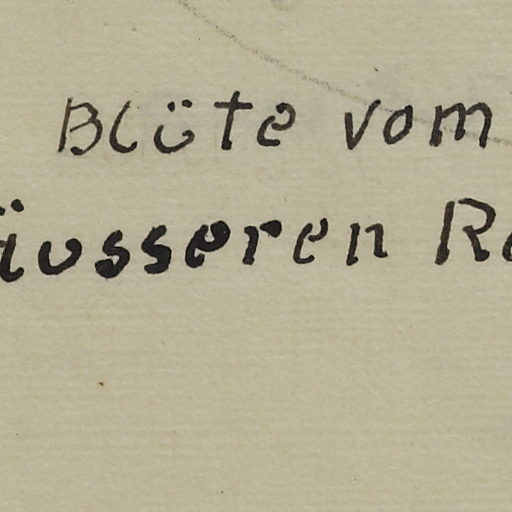 Blüte vom
äusseren